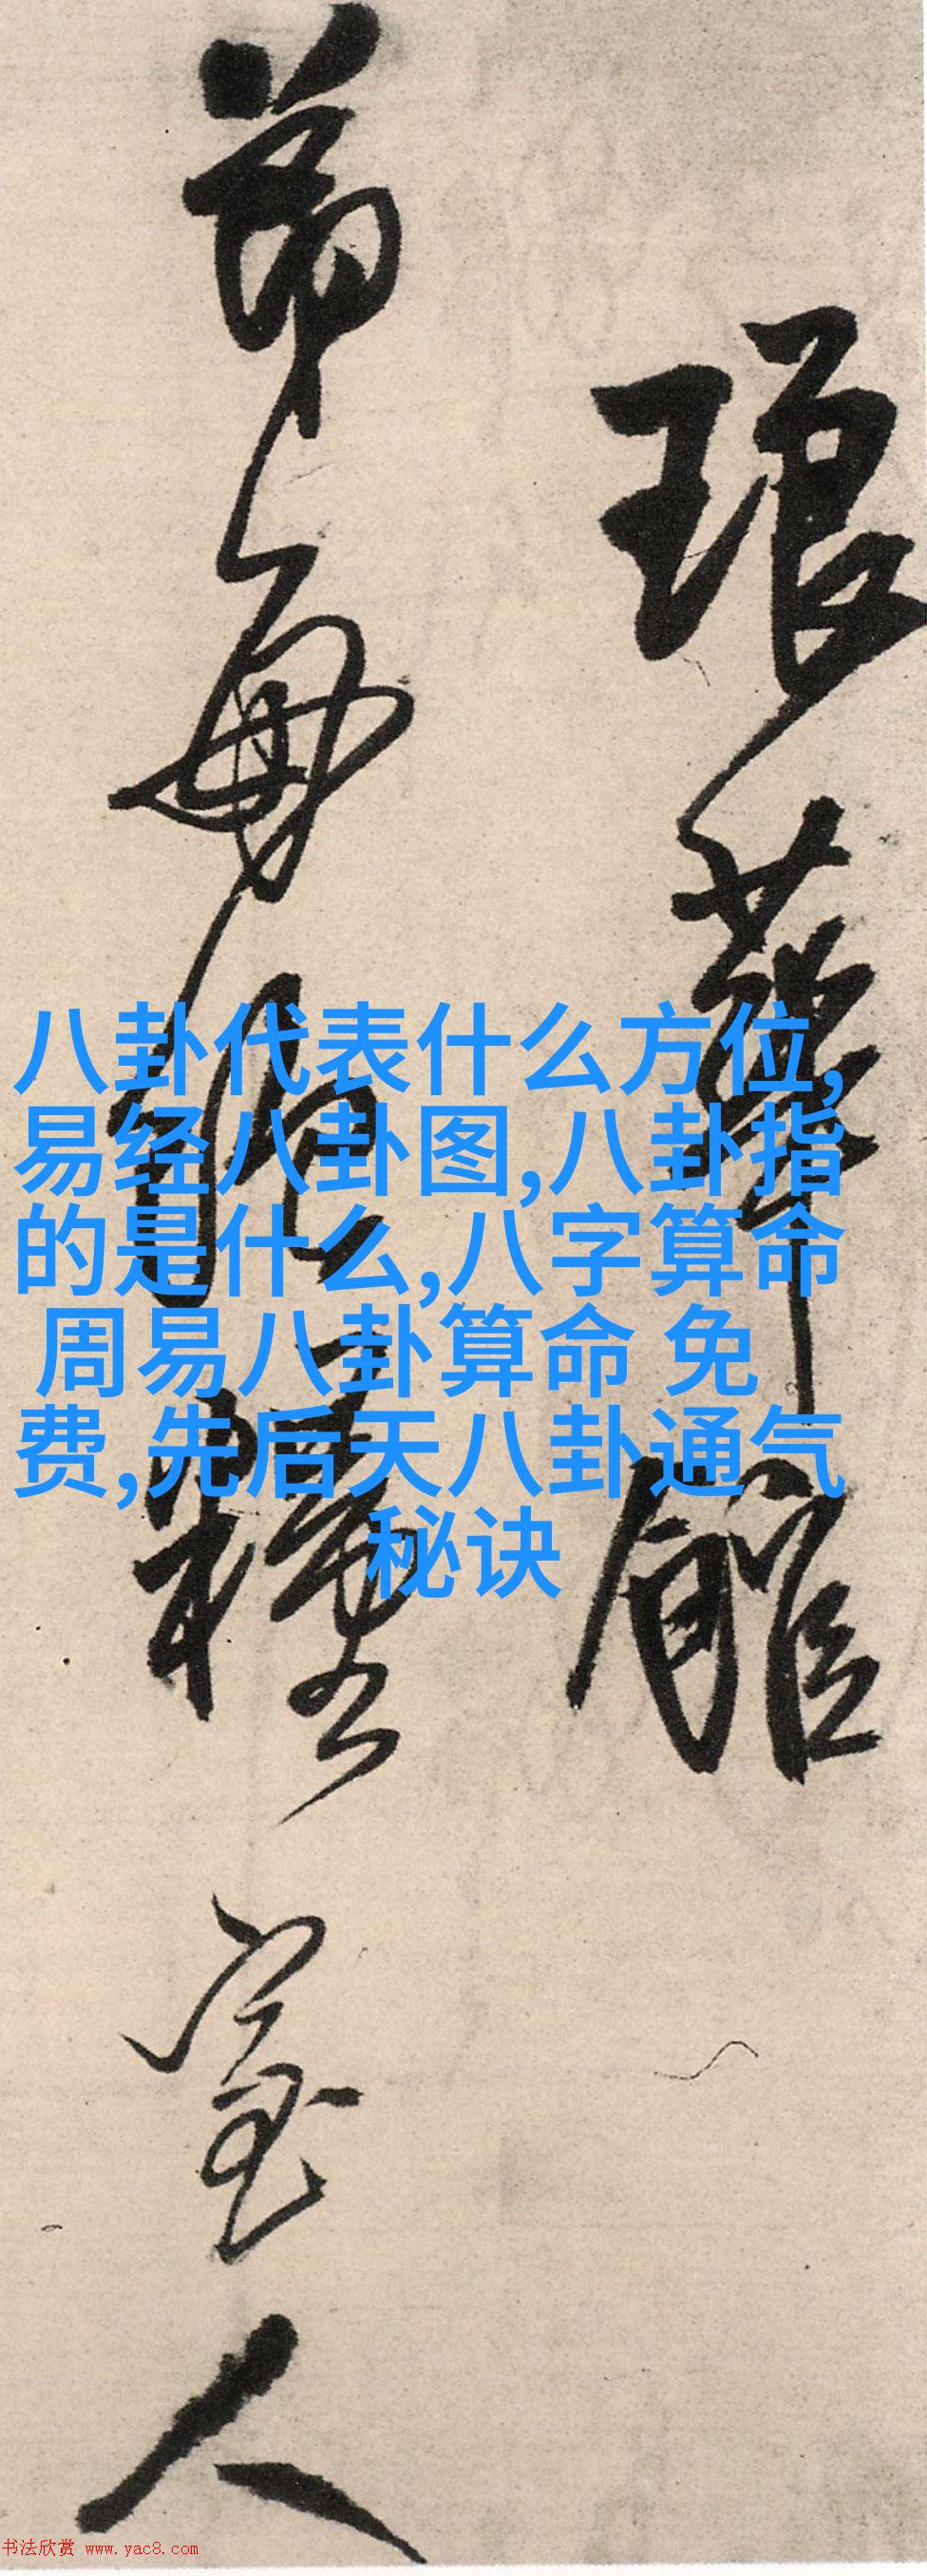 琅華館
八卦代表什么方位,
易经八卦图,八卦指
的是什么,八字算命
周易八卦算命 免
费,先后天八卦通气
秘诀
人
书法欣赏 www.yac8.com